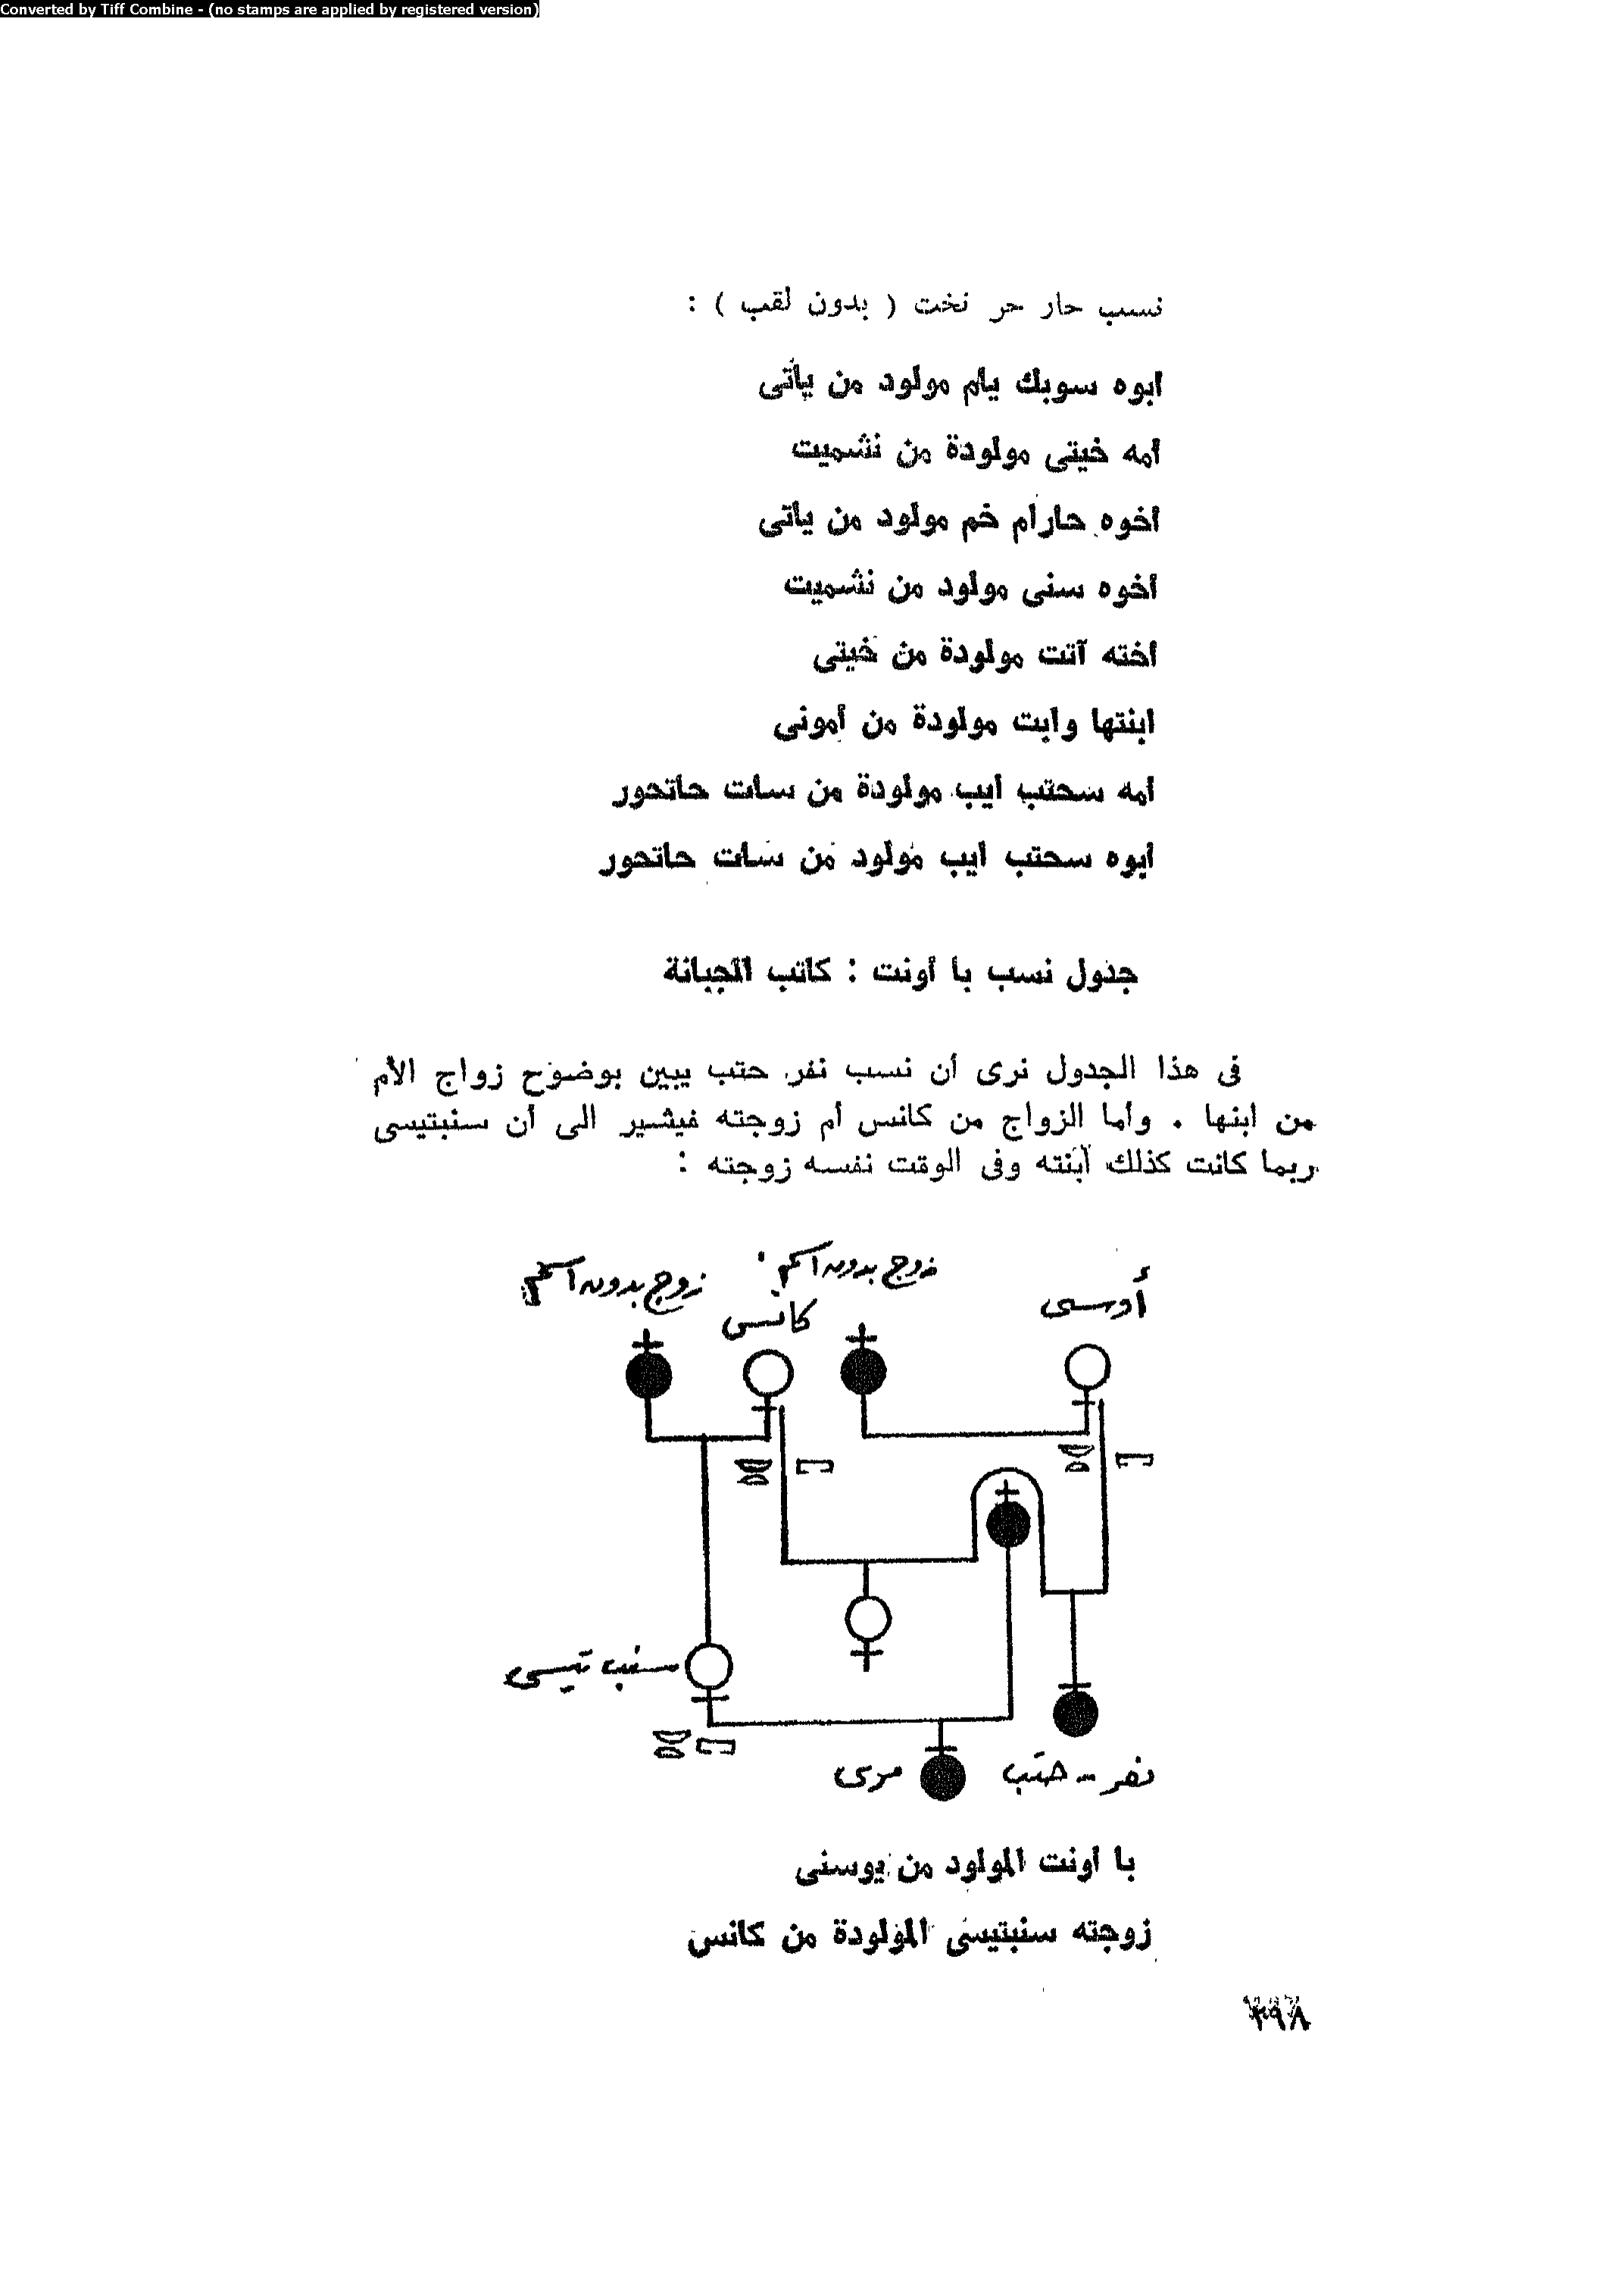 Converted by Tiff Combine - (no stamps are applied by registered version)
نسب حار حر نخت ( بدون لقب ) :
أبوه سوبك يام مولود من يأتى
أمه خيتى مولودة من نشميت
أخوه حارام خم مولود من ياتى
أخوه سنى مولود من نشميت
أخته آتت مولودة من خيتى
ابنتها وابت مولودة من أمونى
أمه سحتب ايب مولودة من سات حاتحور
أبوه سحتب ايب مولود من سات حاتحور
جدول نسب با أونت : كاتب الجبانة
فى هذا الجدول نرى أن نسب نفر حتب يبين بوضوح زواج الأم
من ابنها . وأما الزواج من كانس أم زوجته فيشير الى أن سنبتيسى
ربما كانت كذلك ابنته وفى الوقت نفسه زوجته :
زوج بدون اسم
زوج بدون اسم
كانسى
أوسى
سنب تيسى
مرى
نفر - حتب
با أونت المولود من يوسنى
زوجته سنبتيسى المولودة من كانس
٢٩٨